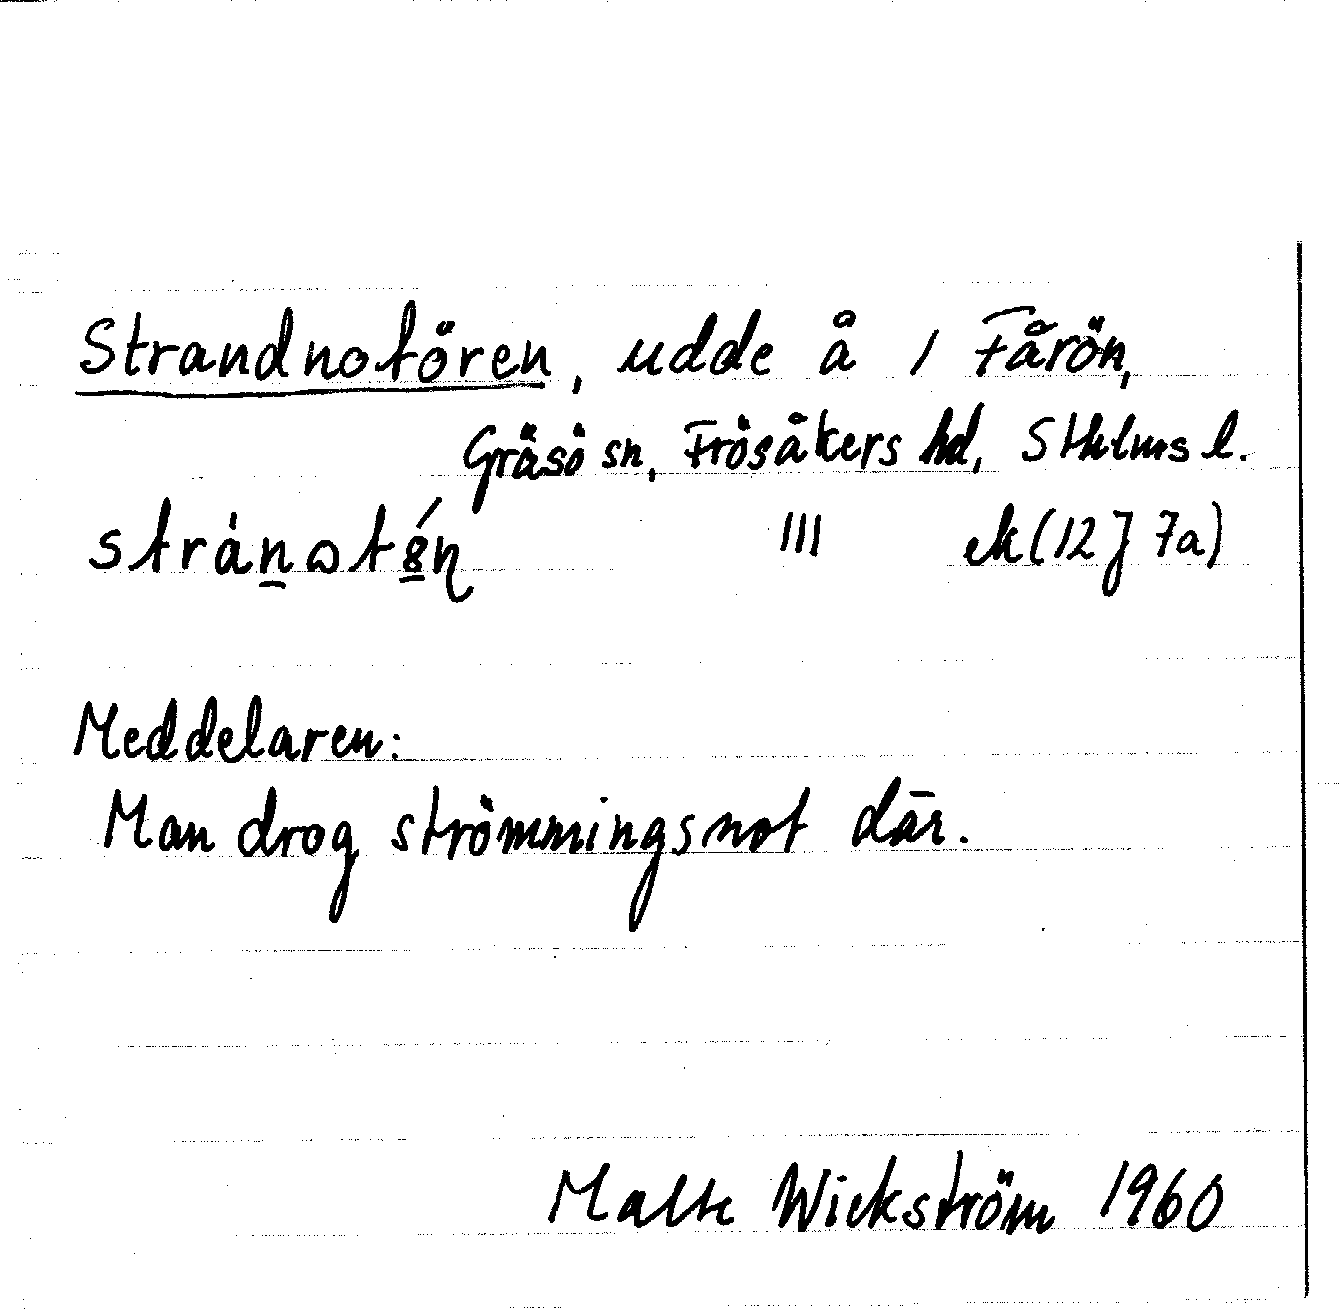 Strandnotören, udde å 1 Fårön,
Gräsö sn, Frösåkers hd, Sthlms l.
III ek (12 J 7a)
Meddelaren:
Man drog strömmingsnot där.
Malte Wickström 1960